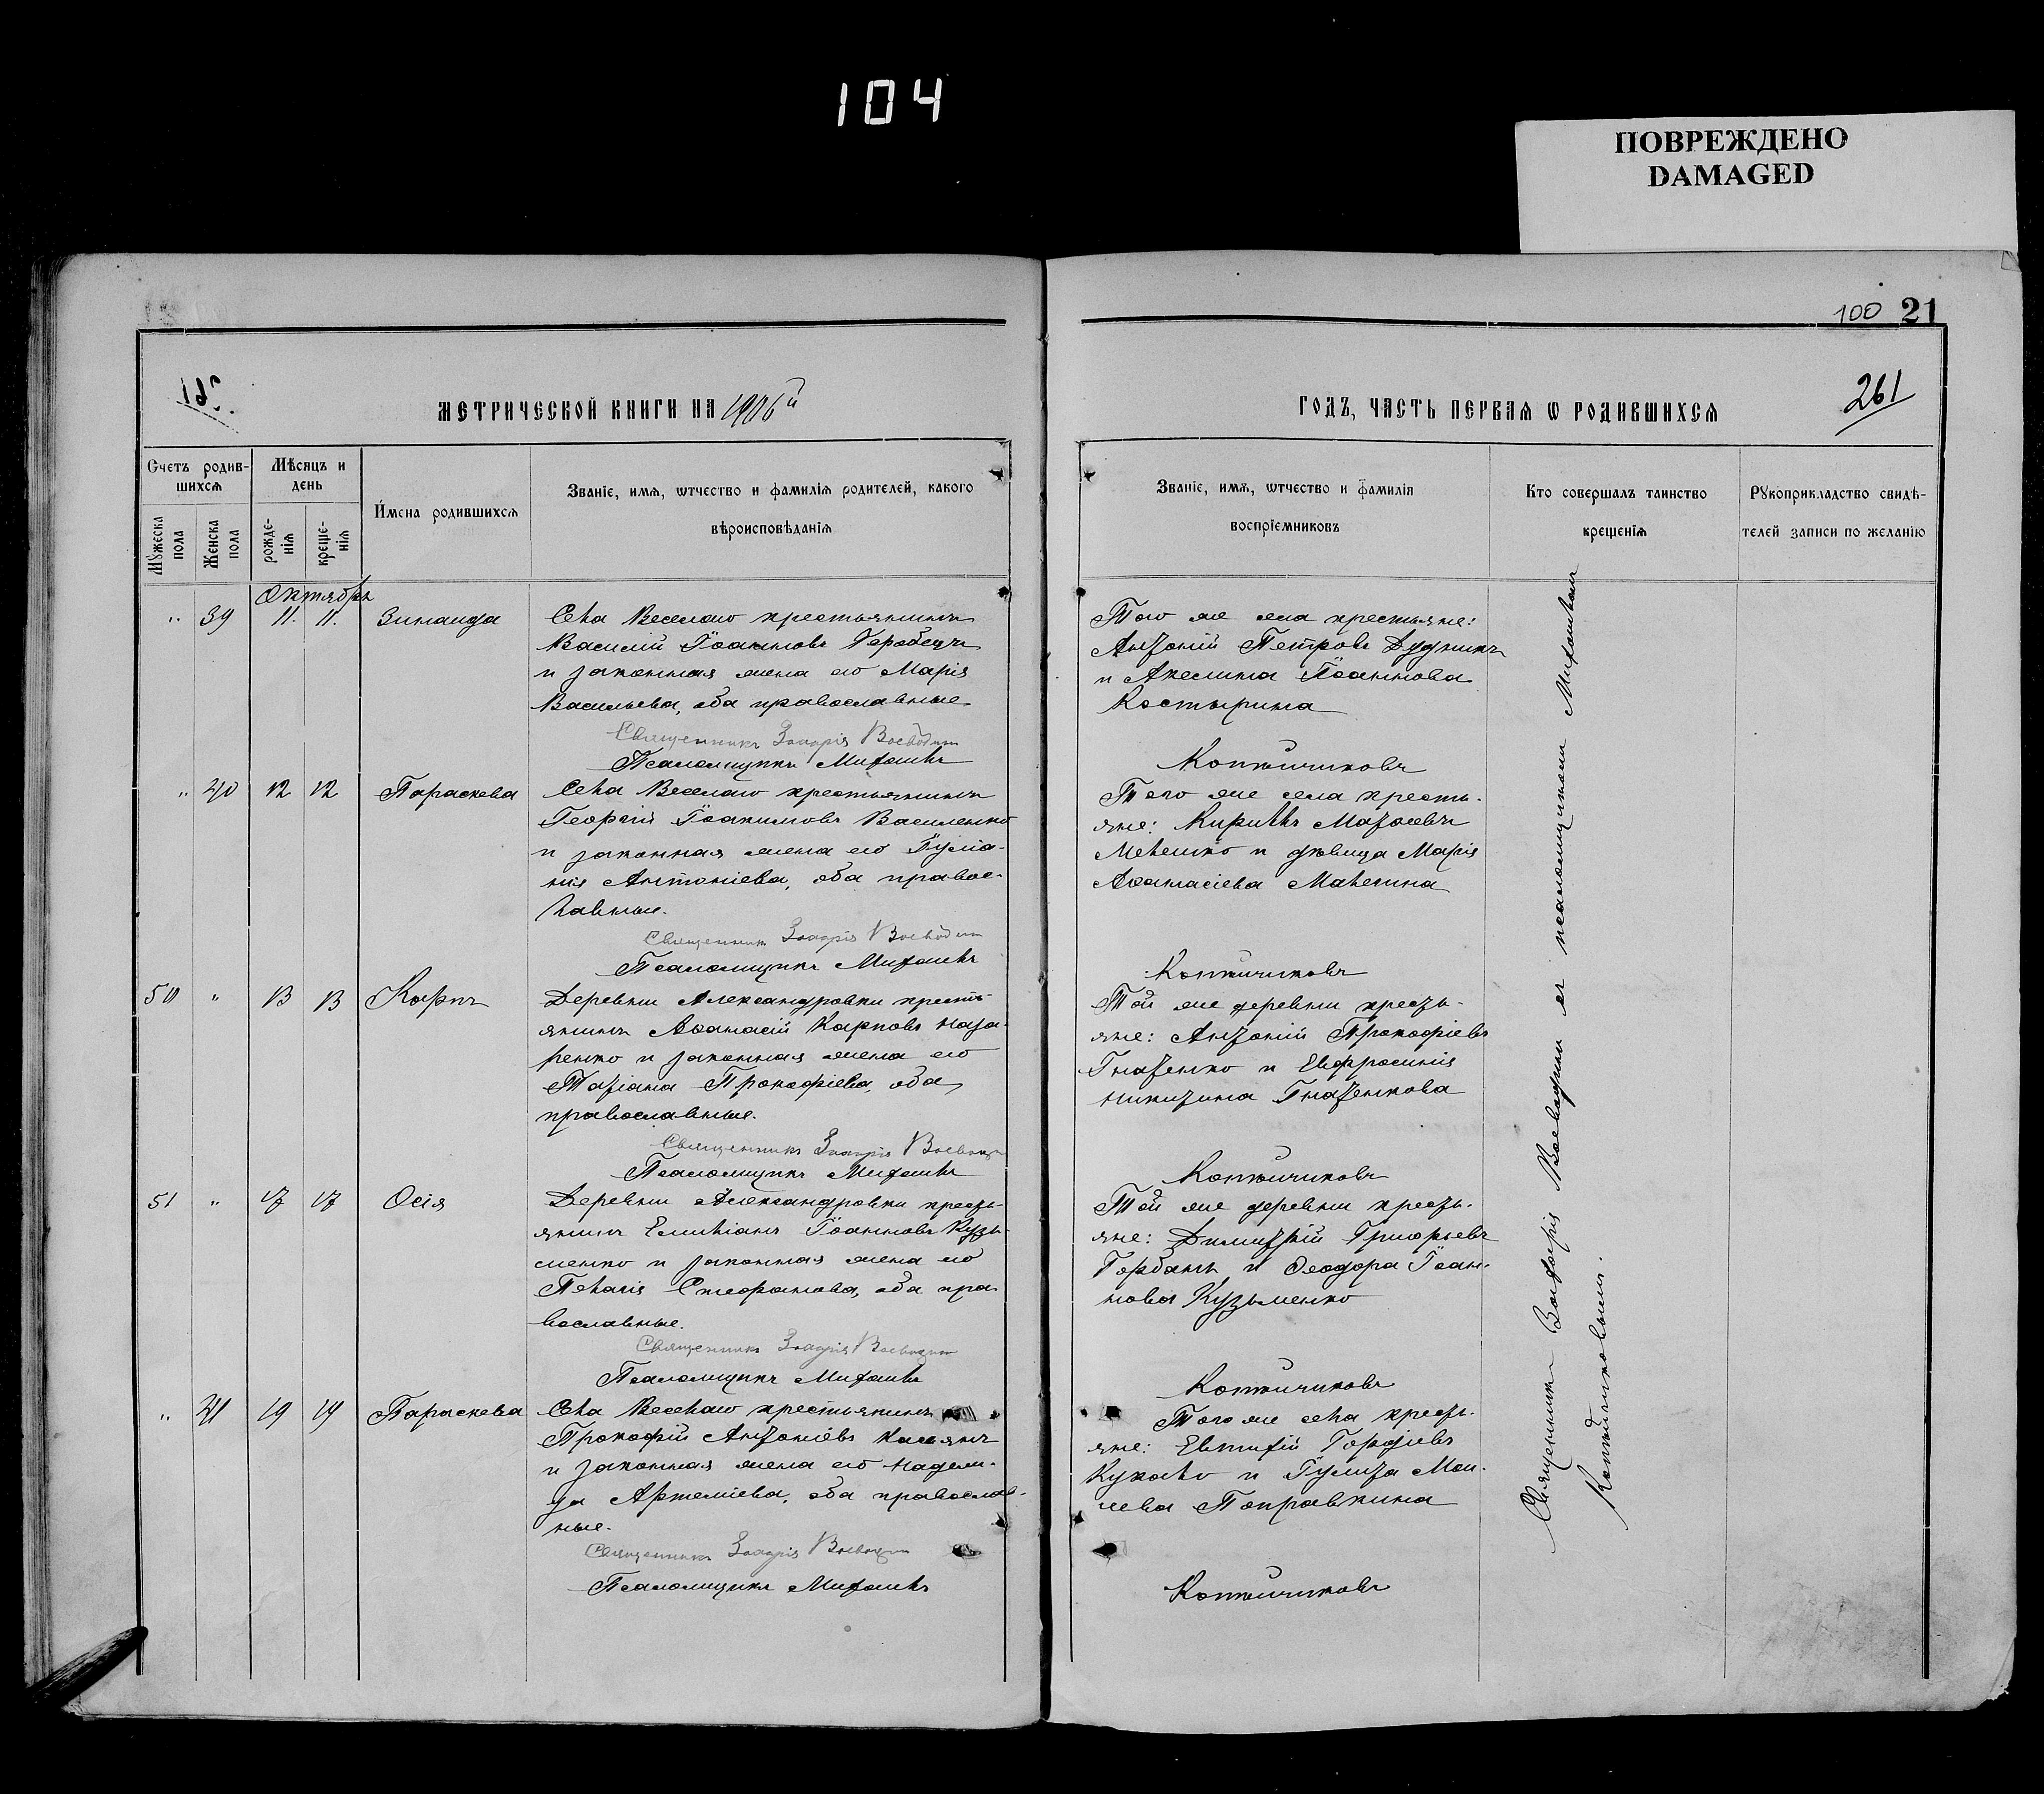 104
ПОВРЕЖДЕНО
DAMAGED
100 21
261
МЕТРИЧЕСКОЙ КНИГИ НА 1906й
ГОДЪ, ЧАСТЬ ПЕРВАЯ Ѡ РОДИВШИХСЯ
Счетъ родив-
шихся
Мужеска пола
Женска пола
Мѣсяцъ и
день
рожде-
нія
креще-
нія
Имена родившихся
Званіе, имя, ѡтчество и фамилія родителей, какого
вѣроисповѣданія
Званіе, имя, ѡтчество и фамилія
воспріемниковъ
Кто совершалъ таинство
крещенія
Рукоприкладство свидѣ-
телей записи по желанію
Октябрь
" 39 11. 11. Зинаида
Села Веселаго крестьянинъ
Василій Іоанновъ
и законная жена его Марія
Васильева, оба православные
Священникъ Захарія Воеводин
Псаломщикъ Михаилъ
Того же села крестьяне:
Антоній Петровъ Дудникъ
и Акелина Іоаннова
Костырина
" 40 12 12 Параскева
Села Веселаго крестьянинъ
Георгій Іоакимовъ Василенко
и законная жена его Іуліа-
нія Антоніева, оба правос-
лавные.
Священникъ Захарія Воеводин
Псаломщикъ Михаилъ
Того же села кресть-
яне: Кириллъ
и дѣвица Марія
Аѳанасіева
50 " 13 13 Карпъ
Деревни Александровки кресть-
янинъ Аѳанасій Карповъ Наза-
ренко и законная жена его
Татіана Прокофіева, оба
православные.
Священникъ Захарія Воеводин
Псаломщикъ Михаилъ
Той же деревни кресть-
яне: Антоній Прокофіевъ
Гнатенко и Евфросинія
Никитина Гнатенкова
51 " 17 17 Осія
Деревни Александровки кресть-
янинъ Емиліанъ Іоанновъ Кузь-
менко и законная жена его
Пелагія Стефанова, оба пра-
вославные.
Священникъ Захарія Воеводин
Псаломщикъ Михаилъ
Той же деревни кресть-
яне: Димитрій Григорьевъ
Горбань и Ѳеодора Іоан-
нова Кузьменко
" 41 19 19 Параскева
Села Веселаго крестьянинъ
Прокофій Антоніевъ Касьянъ
и законная жена его Надеж-
да Артеміева, оба православ-
ные.
Священникъ Захарія Воеводин
Псаломщикъ Михаилъ
Того же села кресть-
яне: Евтихій Гордіевъ
и Іулита Мои-
сеева Поправкина
Священникъ Захарія Воеводинъ съ псаломщикомъ Михаиломъ